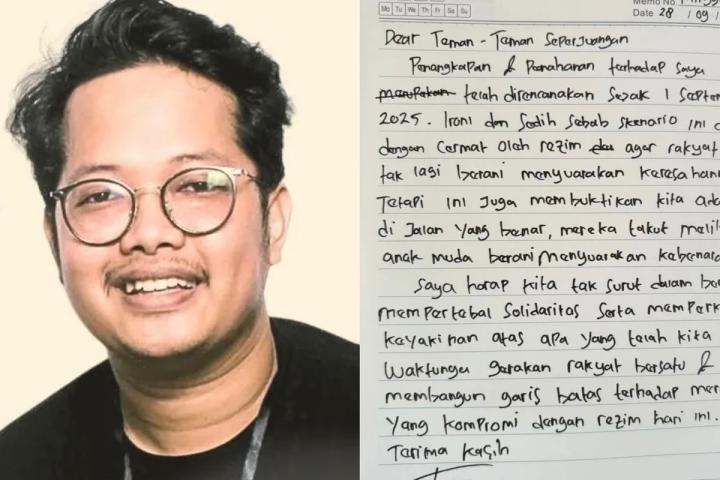 Mo Tu We Th Fr Sa Su
Memo No.
Date 28 / 09 /
Dear Teman - Teman Seperjuangan
Penangkapan & Penahanan terhadap saya
merupakan telah direncanakan sejak 1 Septem
2025. Ironi dan Sedih sebab skenario ini
dengan cermat oleh rezim agar rakyat
tak lagi berani menyuarakan keresahan
Tetapi ini juga membuktikan kita ada
di Jalan yang benar, mereka takut melih
anak muda berani menyuarakan kebenara
Saya harap kita tak surut dalam
mempertebal Solidaritas serta memperk
keyakinan atas apa yang telah kita
Waktunya gerakan rakyat bersatu &
membangun garis batas terhadap mer
yang kompromi dengan rezim hari ini.
Terima Kasih